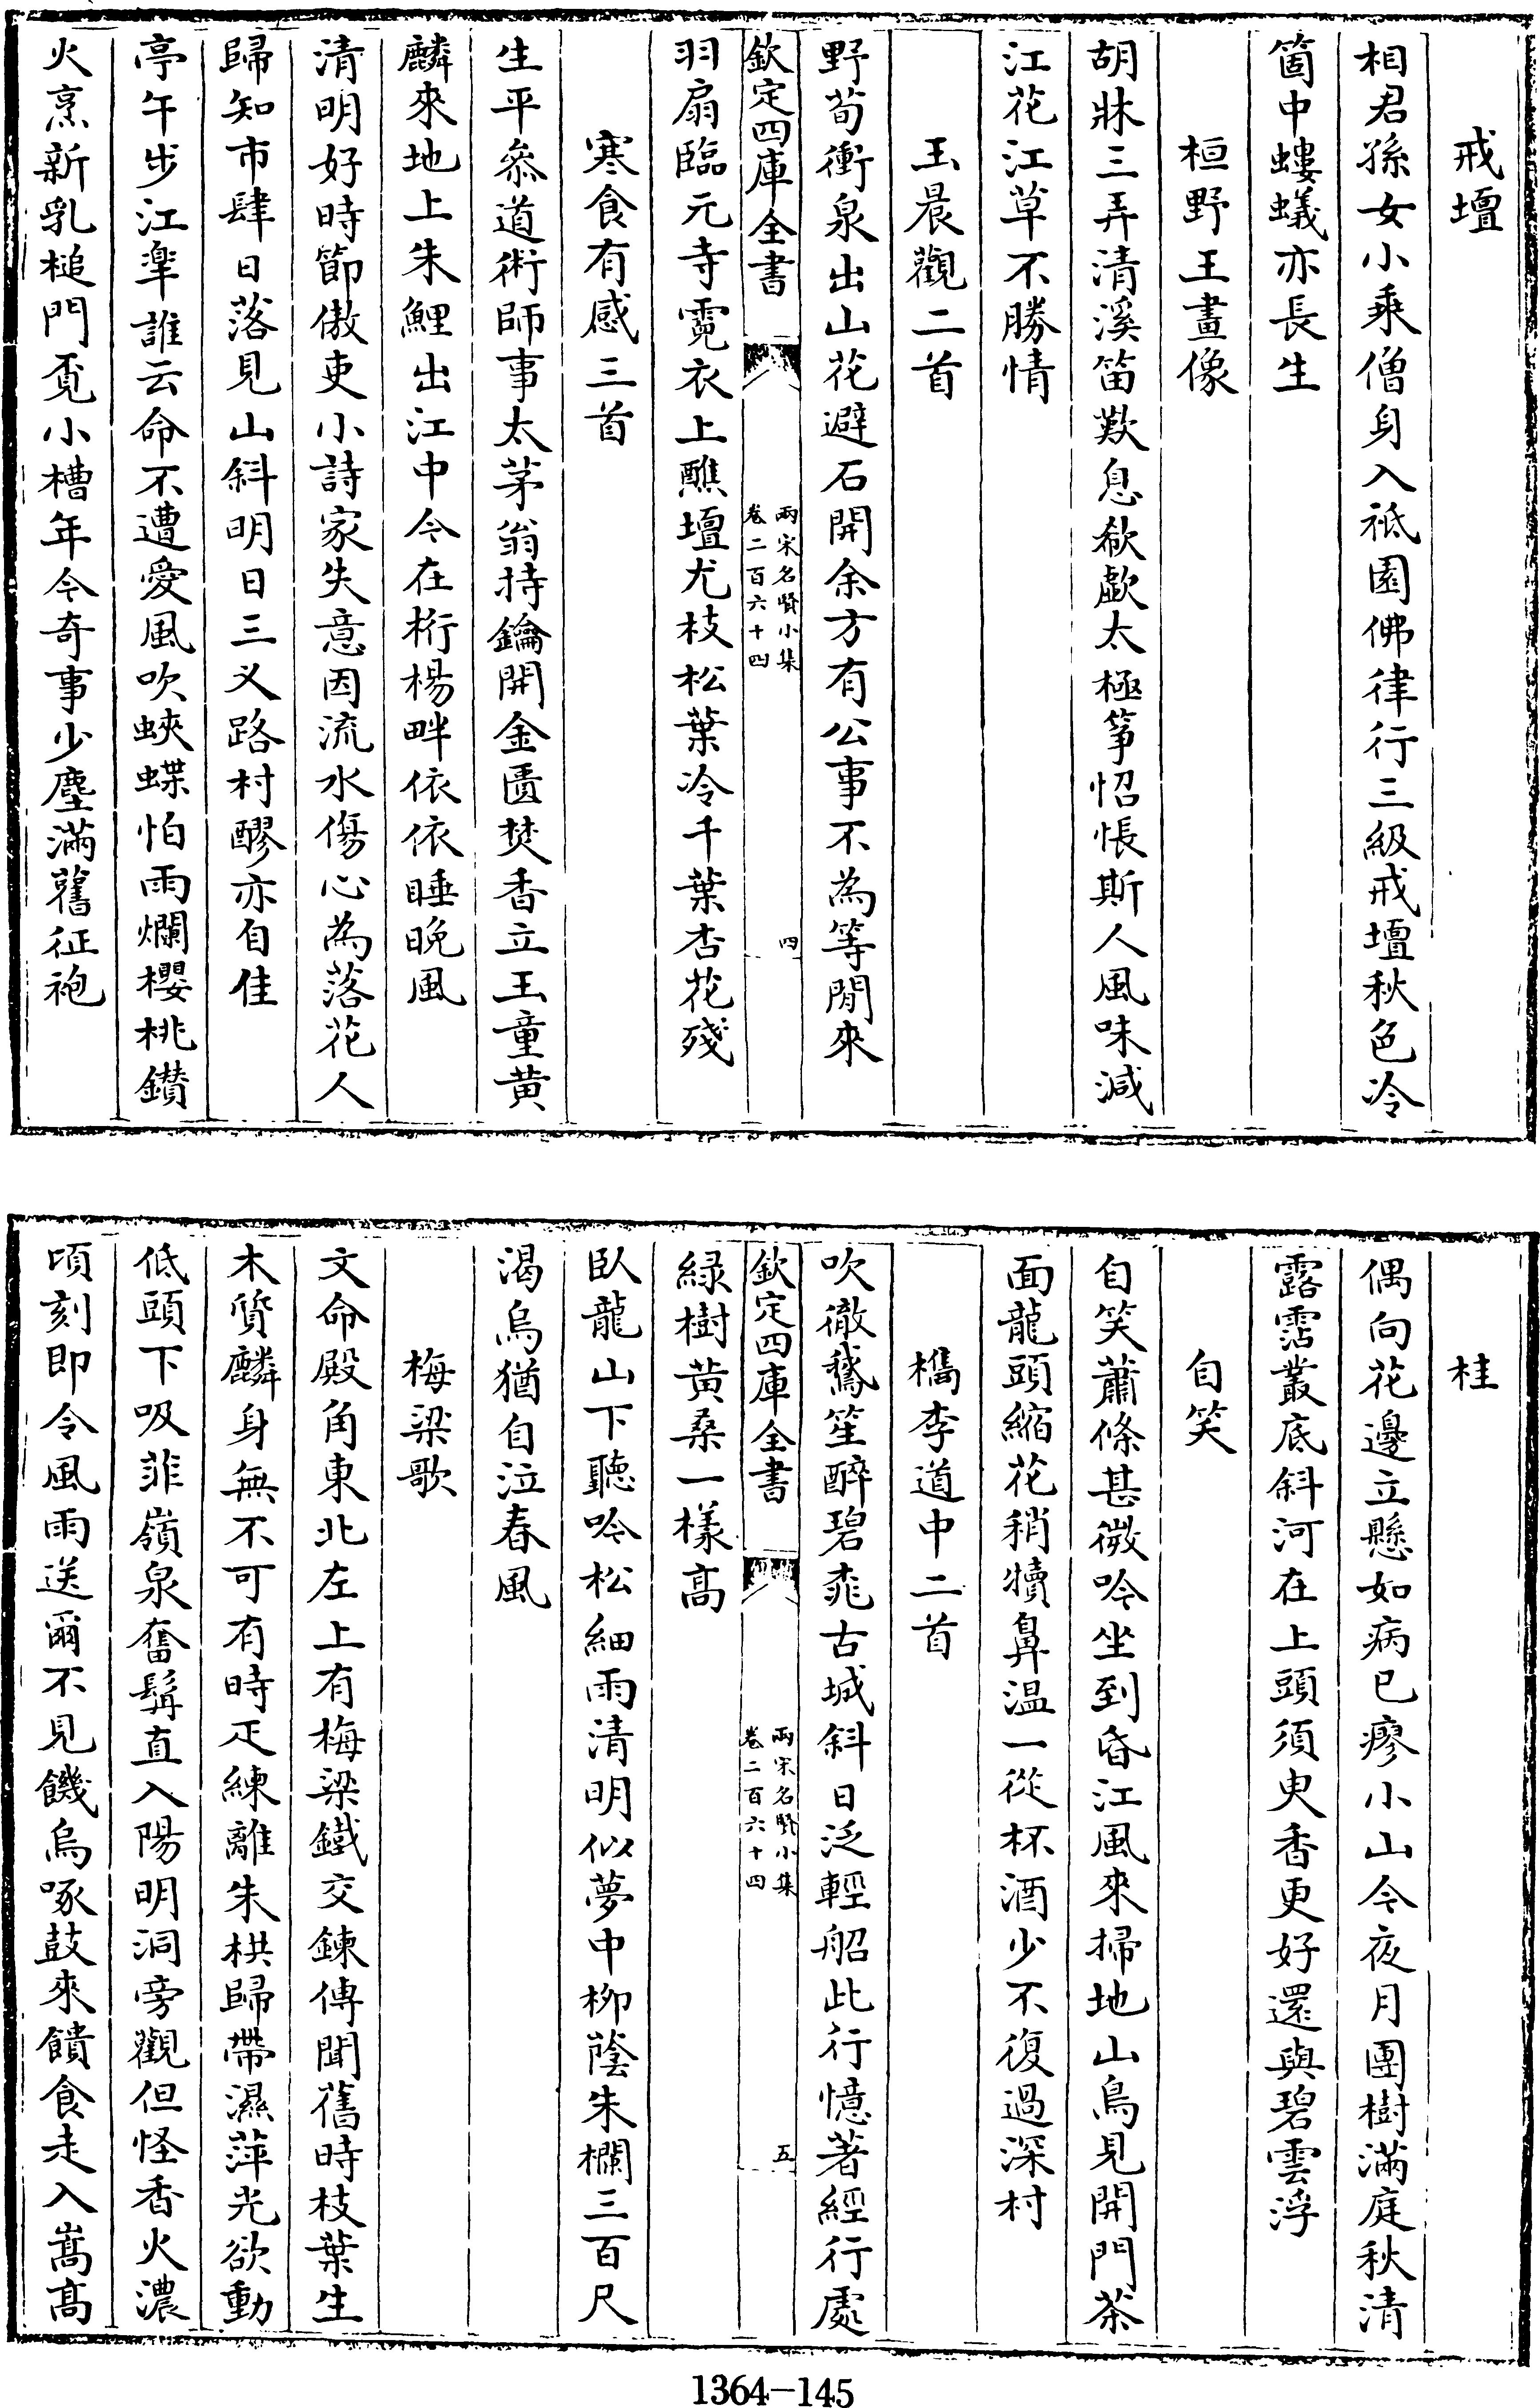 戒壇
相君孫女小乘僧身入祗園佛律行三級戒壇秋色冷
箇中螻蟻亦長生
桓野王畫像
胡牀三弄清溪笛歎息欷歔太極筝怊悵斯人風味減
江花江草不勝情
玉晨觀二首
野荀衝泉出山花避石開余方有公事不為等閒來
欽定四庫全書
兩宋名賢小集
卷二百六十四
四
羽扇臨元寺霓衣上醮壇尤枝松葉冷千葉杏花殘
寒食有感三首
生平叅道術師事太茅翁持鑰開金匱焚香立玉童黄
麟來地上朱鯉出江中今在桁楊畔依依睡晚風
清明好時節傲吏小詩家失意因流水傷心為落花人
歸知市肆日落見山斜明日三义路村醪亦自佳
亭午步江臯誰云命不遭愛風吹蛺蝶怕雨爛櫻桃鑚
火烹新乳槌門覔小槽年今奇事少塵滿舊征袍
桂
偶向花邊立懸如病已瘳小山今夜月團樹滿庭秋清
露霑叢底斜河在上頭須臾香更好還與碧雲浮
自笑
自笑蕭條甚微吟坐到昏江風來掃地山鳥見開門茶
面龍頭縮花稍犢鼻温一從杯酒少不復過深村
檇李道中二首
吹徹鵞笙醉碧桃古城斜日泛輕船此行憶著經行處
欽定四庫全書
兩宋名賢小集
卷二百六十四
五
緑樹黄桑一樣高
臥龍山下聽吟松細雨清明似夢中柳蔭朱欄三百尺
渴烏猶自泣春風
梅梁歌
文命殿角東北左上有梅梁鐵交鍊傳聞舊時枝葉生
木質麟身無不可有時疋練離朱栱歸帶濕萍光欲動
低頭下吸菲嶺泉奮髯直入陽明洞旁觀但怪香火濃
頃刻即令風雨送爾不見饑烏啄鼓來饋食走入嵩高
1364-145